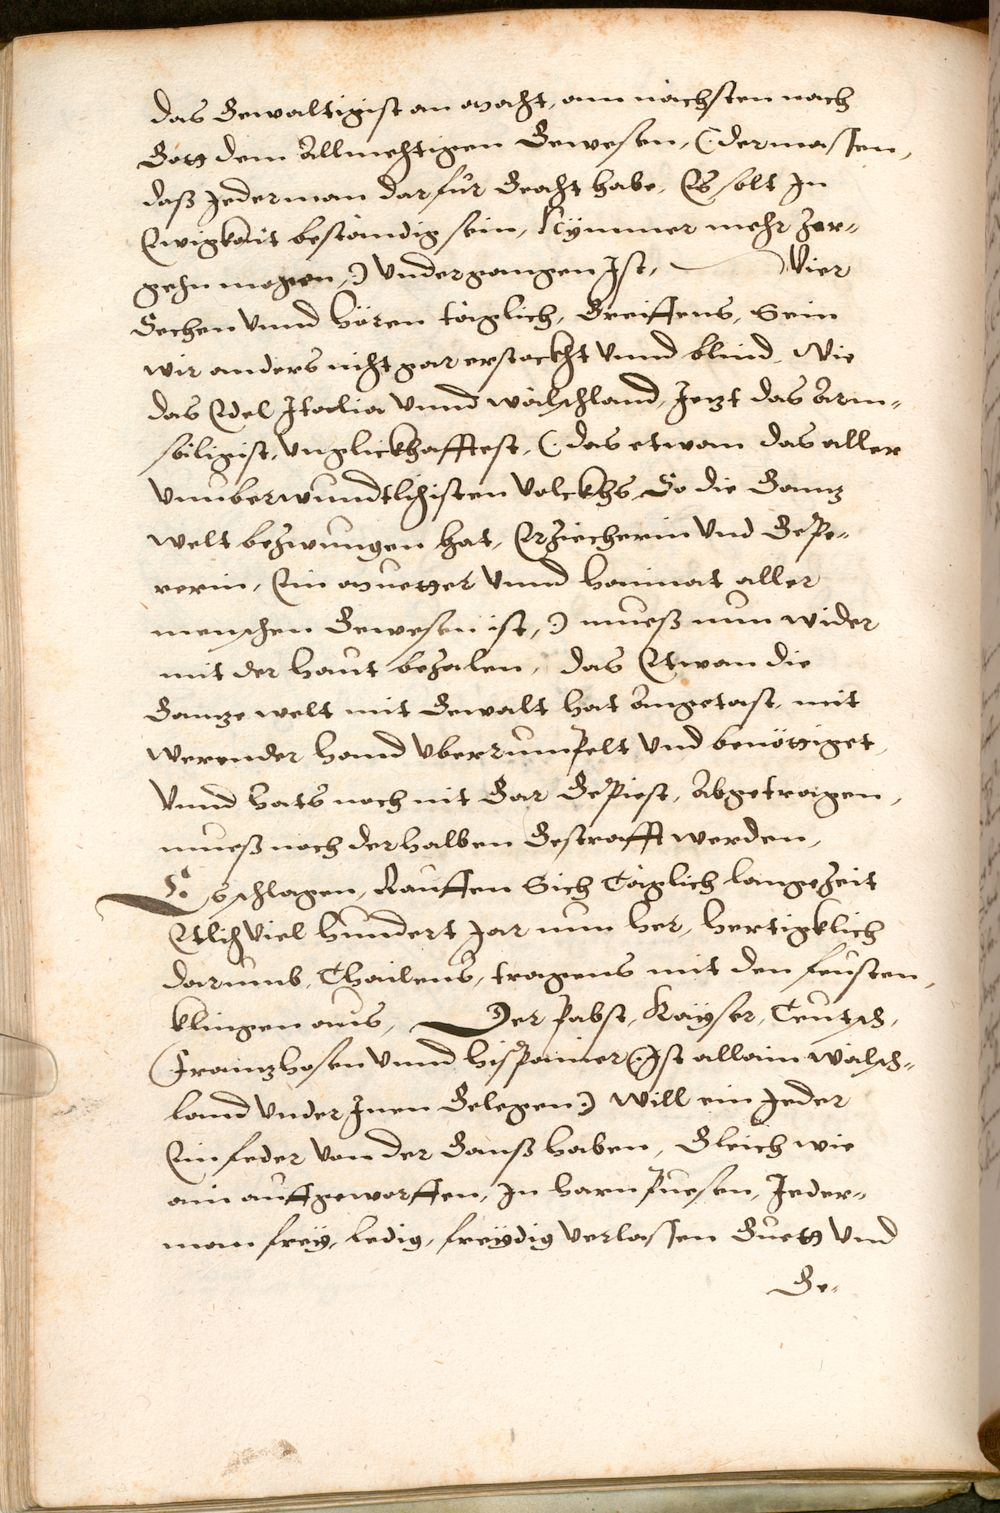 das Gewaltigist an macht, am nächsten nach
Gott dem Allmechtigen Gewesen, (: dermassen,
daß Jederman darfür Geacht habe, Es solt In
Ewigkait beständig sein, Nÿmmer mehr zer-
gehn mogen,:) Vndergangen Ist, Wier
Sechen Vnnd hören täglich, Greiffens, Sein
wir anders nicht gar erstockht Vnnd blind, Wie
das Edel Italia Vnnd wälschland, Jezt das Arm-
säligist, Vnglickhafftest, (: das etwan das aller
Vnuberwundtlichisten Volckhs, So die Gannz
welt bezwungen hat, Erziecherin Vnd Gepe-
rerin, Ein Muetter Vnnd haimat aller
menschen Gewesen ist,:) mueß nun wider
mit der haut bezalen, das Etwan die
Ganze welt mit Gewalt hat Angetast, mit
werender hand vberrumpelt Vnd benöttiget,
Vnnd hats noch nit Gar Gepiest, Abgetragen,
mueß noch derhalben Gestrafft werden,
Es schlagen, Rauffen Sich Täglich lange Zeit
Etlich Viel hundert Jar nun her, hertigklich
darumb, Thailens, tragens mit den feusten,
klingen aus, Der Pabst, Kaÿser, Teutsch,
Franzhosen Vnnd hispanier (: Ist allain Wälsch-
land Vnder Inen Gelegen:) Will ein Jeder
Ein feder von der Ganß haben, Gleich wie
ain auffgeworffen, In harnpuesen, Jeder-
man freÿ, ledig, freÿdig verlassen Guett Vnd
Ge-